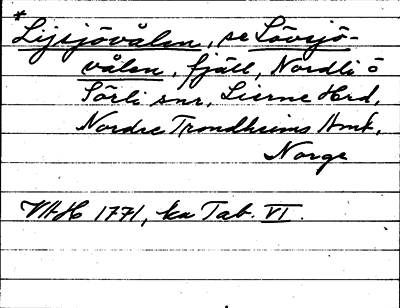 *Lijsjövålen, se Lövsjö-
vålen, fjäll, Nordli o
Sörli snr, Lierne Hrd,
Nordre Trondhiems Amt,
Norge
VAH 1771, ka Tab. VI.